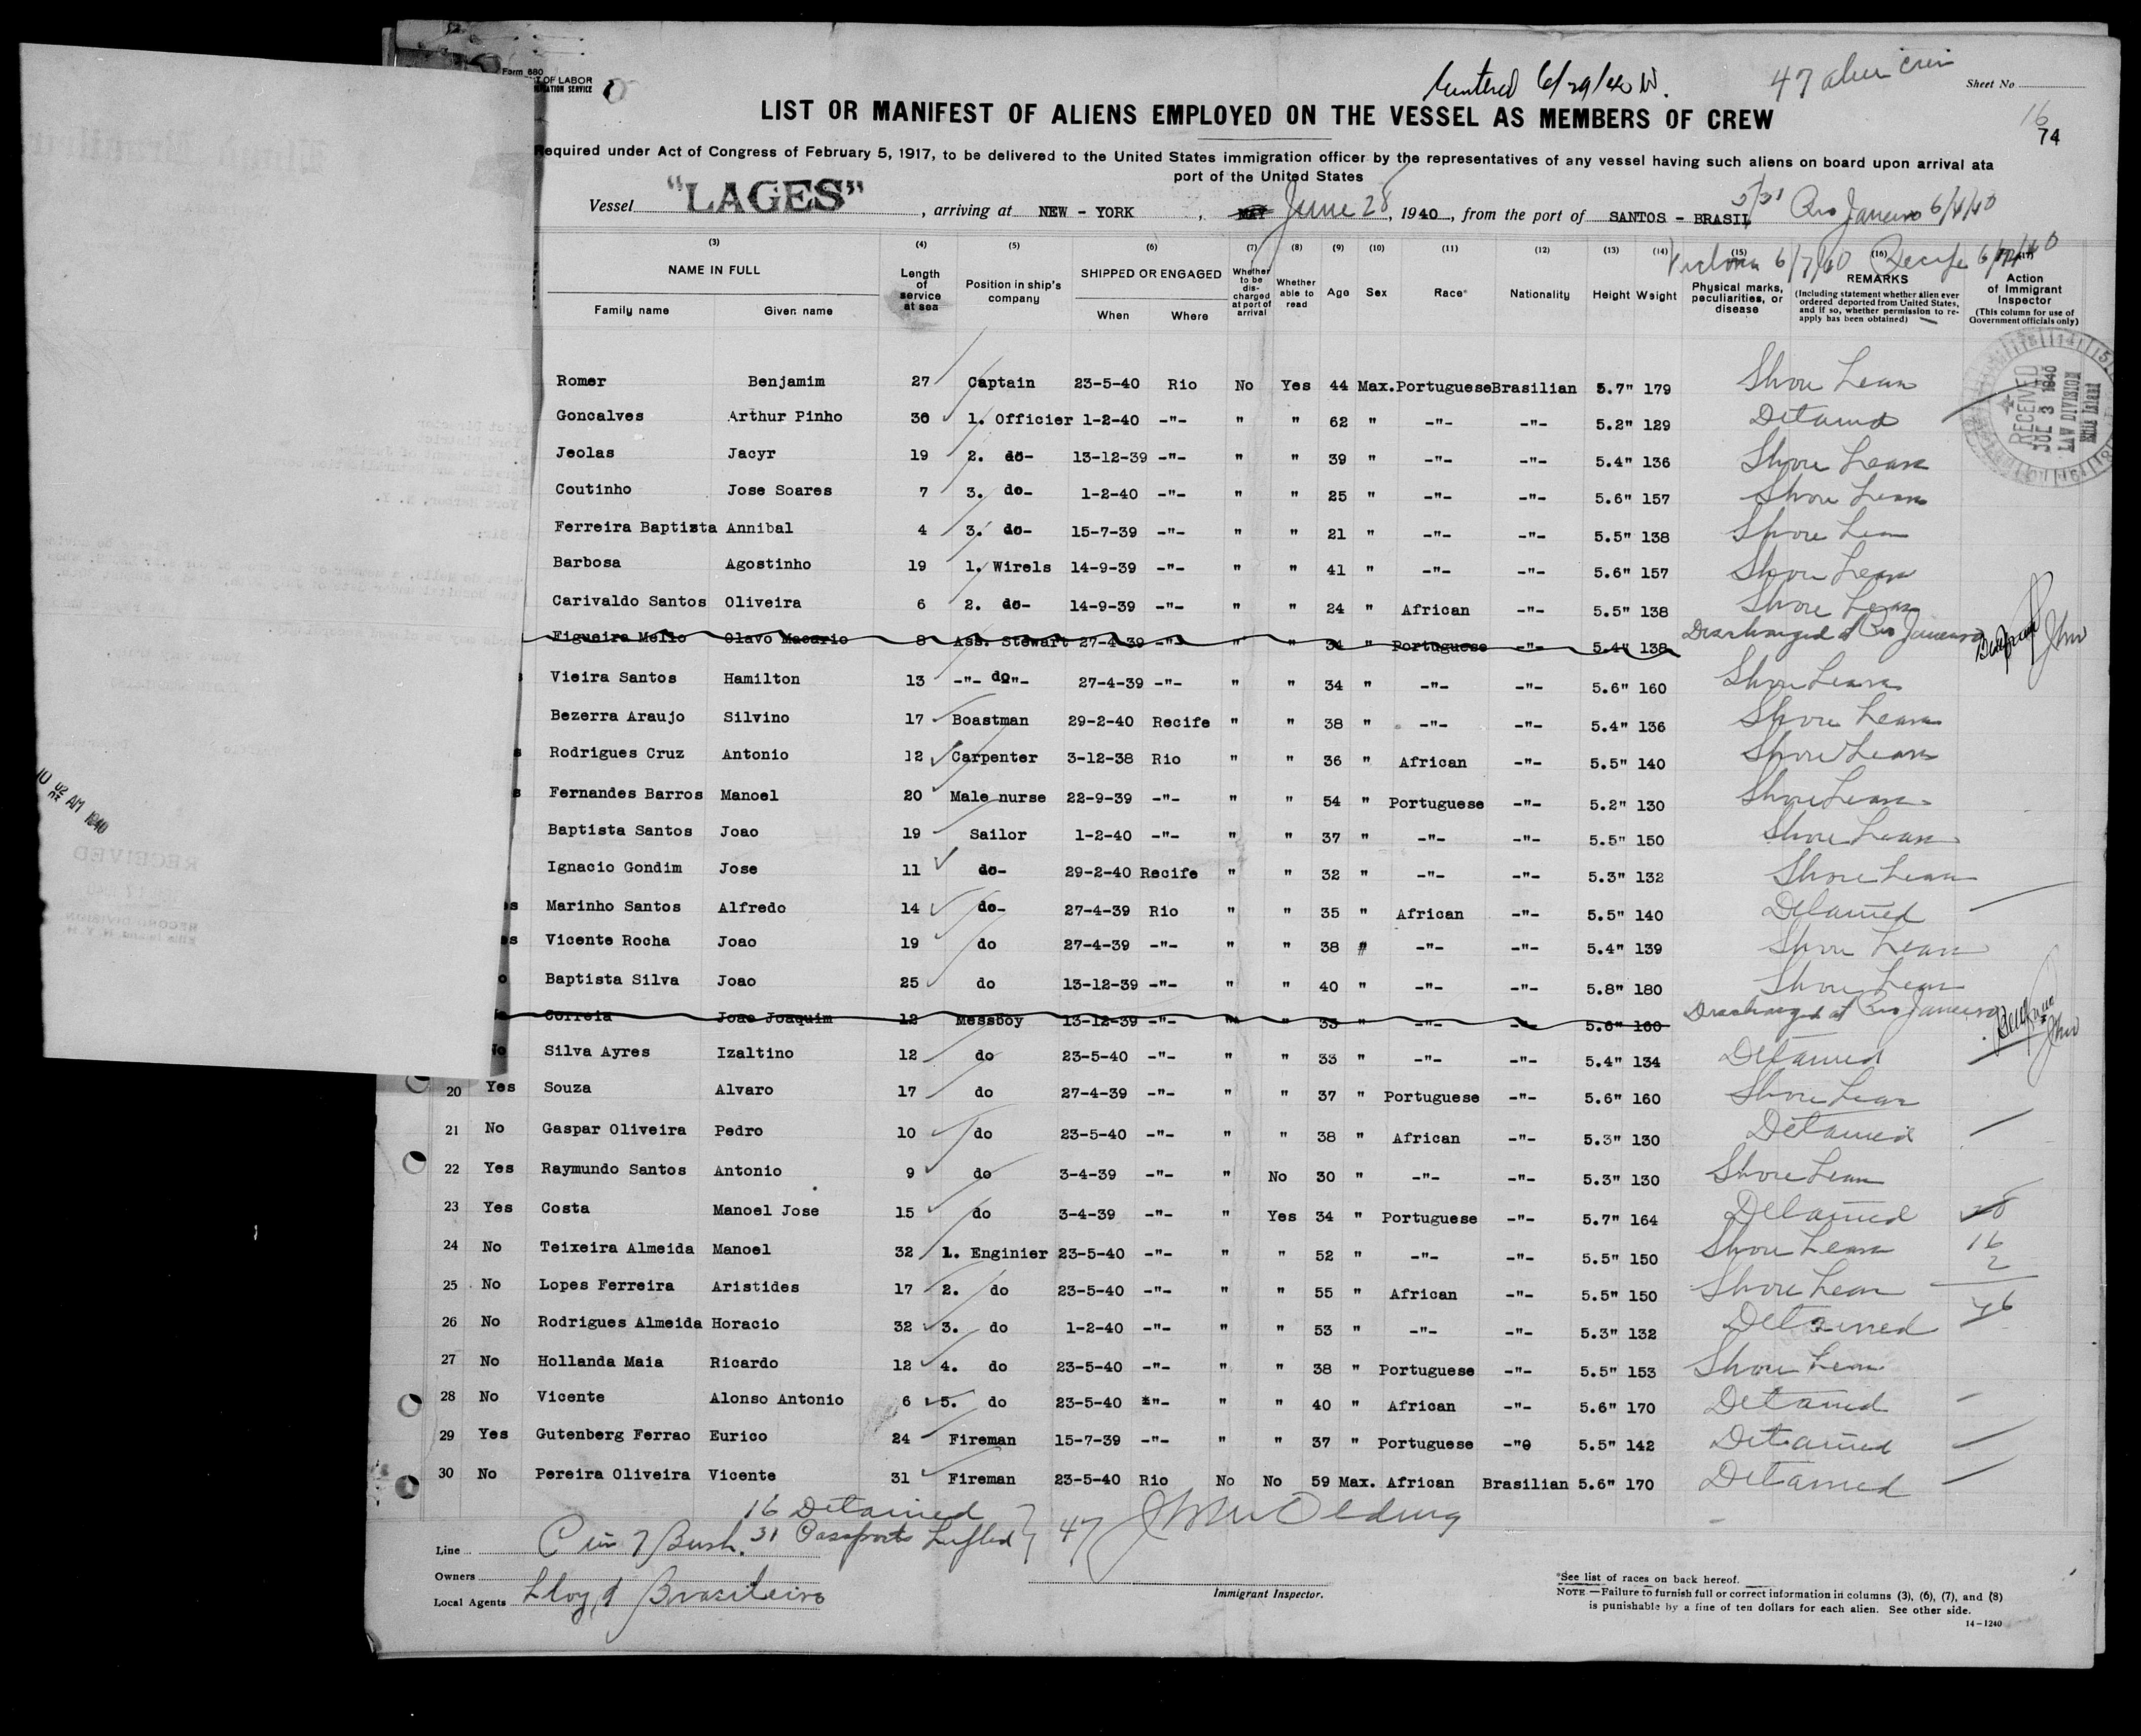 Form 680
T OF LABOR
RATION SERVICE
Entered 6/29/40 W.
47 alien crew
Sheet No.
16
74
LIST OR MANIFEST OF ALIENS EMPLOYED ON THE VESSEL AS MEMBERS OF CREW
Required under Act of Congress of February 5, 1917, to be delivered to the United States immigration officer by the representatives of any vessel having such aliens on board upon arrival ata
port of the United States
Vessel "LAGES", arriving at NEW - YORK, MAY June 28, 1940, from the port of SANTOS - BRASIL 5/31 Rio Janeiro 6/4/40
Victoria 6/7/40 Recife
(3) (4) (5) (6) (7) (8) (9) (10) (11) (12) (13) (14) (15) (16)
NAME IN FULL
Family name Given name
Length of service at sea
Position in ship's company
SHIPPED OR ENGAGED
When Where
Whether to be discharged at port of arrival
Whether able to read
Age Sex Race* Nationality Height Weight
Physical marks, peculiarities, or disease
REMARKS
(Including statement whether alien ever ordered deported from United States, and if so, whether permission to re-apply has been obtained)
Action of Immigrant Inspector
(This column for use of Government officials only)
RECEIVED
JUL 3 1940
LAW DIVISION
Ellis Island
Romer Benjamim 27 Captain 23-5-40 Rio No Yes 44 Max. Portuguese Brasilian 5.7" 179 Shore Leave
Goncalves Arthur Pinho 30 1. Officier 1-2-40 -"- " " 62 " -"- -"- 5.2" 129 Detained
Jeolas Jacyr 19 2. do- 13-12-39 -"- " " 39 " -"- -"- 5.4" 136 Shore Leave
Coutinho Jose Soares 7 3. do- 1-2-40 -"- " " 25 " -"- -"- 5.6" 157 Shore Leave
Ferreira Baptista Annibal 4 3. do- 15-7-39 -"- " " 21 " -"- -"- 5.5" 138 Shore Leave
Barbosa Agostinho 19 1. Wirels 14-9-39 -"- " " 41 " -"- -"- 5.6" 157 Shore Leave
Carivaldo Santos Oliveira 6 2. do- 14-9-39 -"- " " 24 " African -"- 5.5" 138 Shore Leave
Figueira Mello Olavo Macario 8 Ass. Stewart 27-4-39 -"- " " 34 " Portuguese -"- 5.4" 138 Discharged at Rio Janeiro
Vieira Santos Hamilton 13 -"- do"- 27-4-39 -"- " " 34 " -"- -"- 5.6" 160 Shore Leave
Bezerra Araujo Silvino 17 Boastman 29-2-40 Recife " " 38 " -"- -"- 5.4" 136 Shore Leave
s Rodrigues Cruz Antonio 12 Carpenter 3-12-38 Rio " " 36 " African -"- 5.5" 140 Shore Leave
s Fernandes Barros Manoel 20 Male nurse 22-9-39 -"- " " 54 " Portuguese -"- 5.2" 130 Shore Leave
Baptista Santos Joao 19 Sailor 1-2-40 -"- " " 37 " -"- -"- 5.5" 150 Shore Leave
Ignacio Gondim Jose 11 do- 29-2-40 Recife " " 32 " -"- -"- 5.3" 132 Shore Leave
es Marinho Santos Alfredo 14 do- 27-4-39 Rio " " 35 " African -"- 5.5" 140 Detained
es Vicente Rocha Joao 19 do 27-4-39 -"- " " 38 " -"- -"- 5.4" 139 Shore Leave
o Baptista Silva Joao 25 do 13-12-39 -"- " " 40 " -"- -"- 5.8" 180 Shore Leave
Correia Joao Joaquim 12 Messboy 13-12-39 -"- " " 33 " -"- -"- 5.6" 160 Discharged at Rio Janeiro
No Silva Ayres Izaltino 12 do 23-5-40 -"- " " 33 " -"- -"- 5.4" 134 Detained
20 Yes Souza Alvaro 17 do 27-4-39 -"- " " 37 " Portuguese -"- 5.6" 160 Shore Leave
21 No Gaspar Oliveira Pedro 10 do 23-5-40 -"- " " 38 " African -"- 5.3" 130 Detained
22 Yes Raymundo Santos Antonio 9 do 3-4-39 -"- " No 30 " -"- -"- 5.3" 130 Shore Leave
23 Yes Costa Manoel Jose 15 do 3-4-39 -"- " Yes 34 " Portuguese -"- 5.7" 164 Detained
24 No Teixeira Almeida Manoel 32 1. Enginier 23-5-40 -"- " " 52 " -"- -"- 5.5" 150 Shore Leave 16
2
25 No Lopes Ferreira Aristides 17 2. do 23-5-40 -"- " " 55 " African -"- 5.5" 150 Shore Leave
26 No Rodrigues Almeida Horacio 32 3. do 1-2-40 -"- " " 53 " -"- -"- 5.3" 132 Detained
27 No Hollanda Maia Ricardo 12 4. do 23-5-40 -"- " " 38 " Portuguese -"- 5.5" 153 Shore Leave
28 No Vicente Alonso Antonio 6 5. do 23-5-40 *"- " " 40 " African -"- 5.6" 170 Detained
29 Yes Gutenberg Ferrao Eurico 24 Fireman 15-7-39 -"- " " 37 " Portuguese -"0 5.5" 142 Detained
30 No Pereira Oliveira Vicente 31 Fireman 23-5-40 Rio No No 59 Max. African Brasilian 5.6" 170 Detained
16 Detained
31 Passports Lifted } 47
Line
Owners
Local Agents Lloyd Brasileiro
Immigrant Inspector.
*See list of races on back hereof.
NOTE.—Failure to furnish full or correct information in columns (3), (6), (7), and (8)
is punishable by a fine of ten dollars for each alien. See other side.
14-1240
AM 1940
RECEIVED
RECORD DIVISION